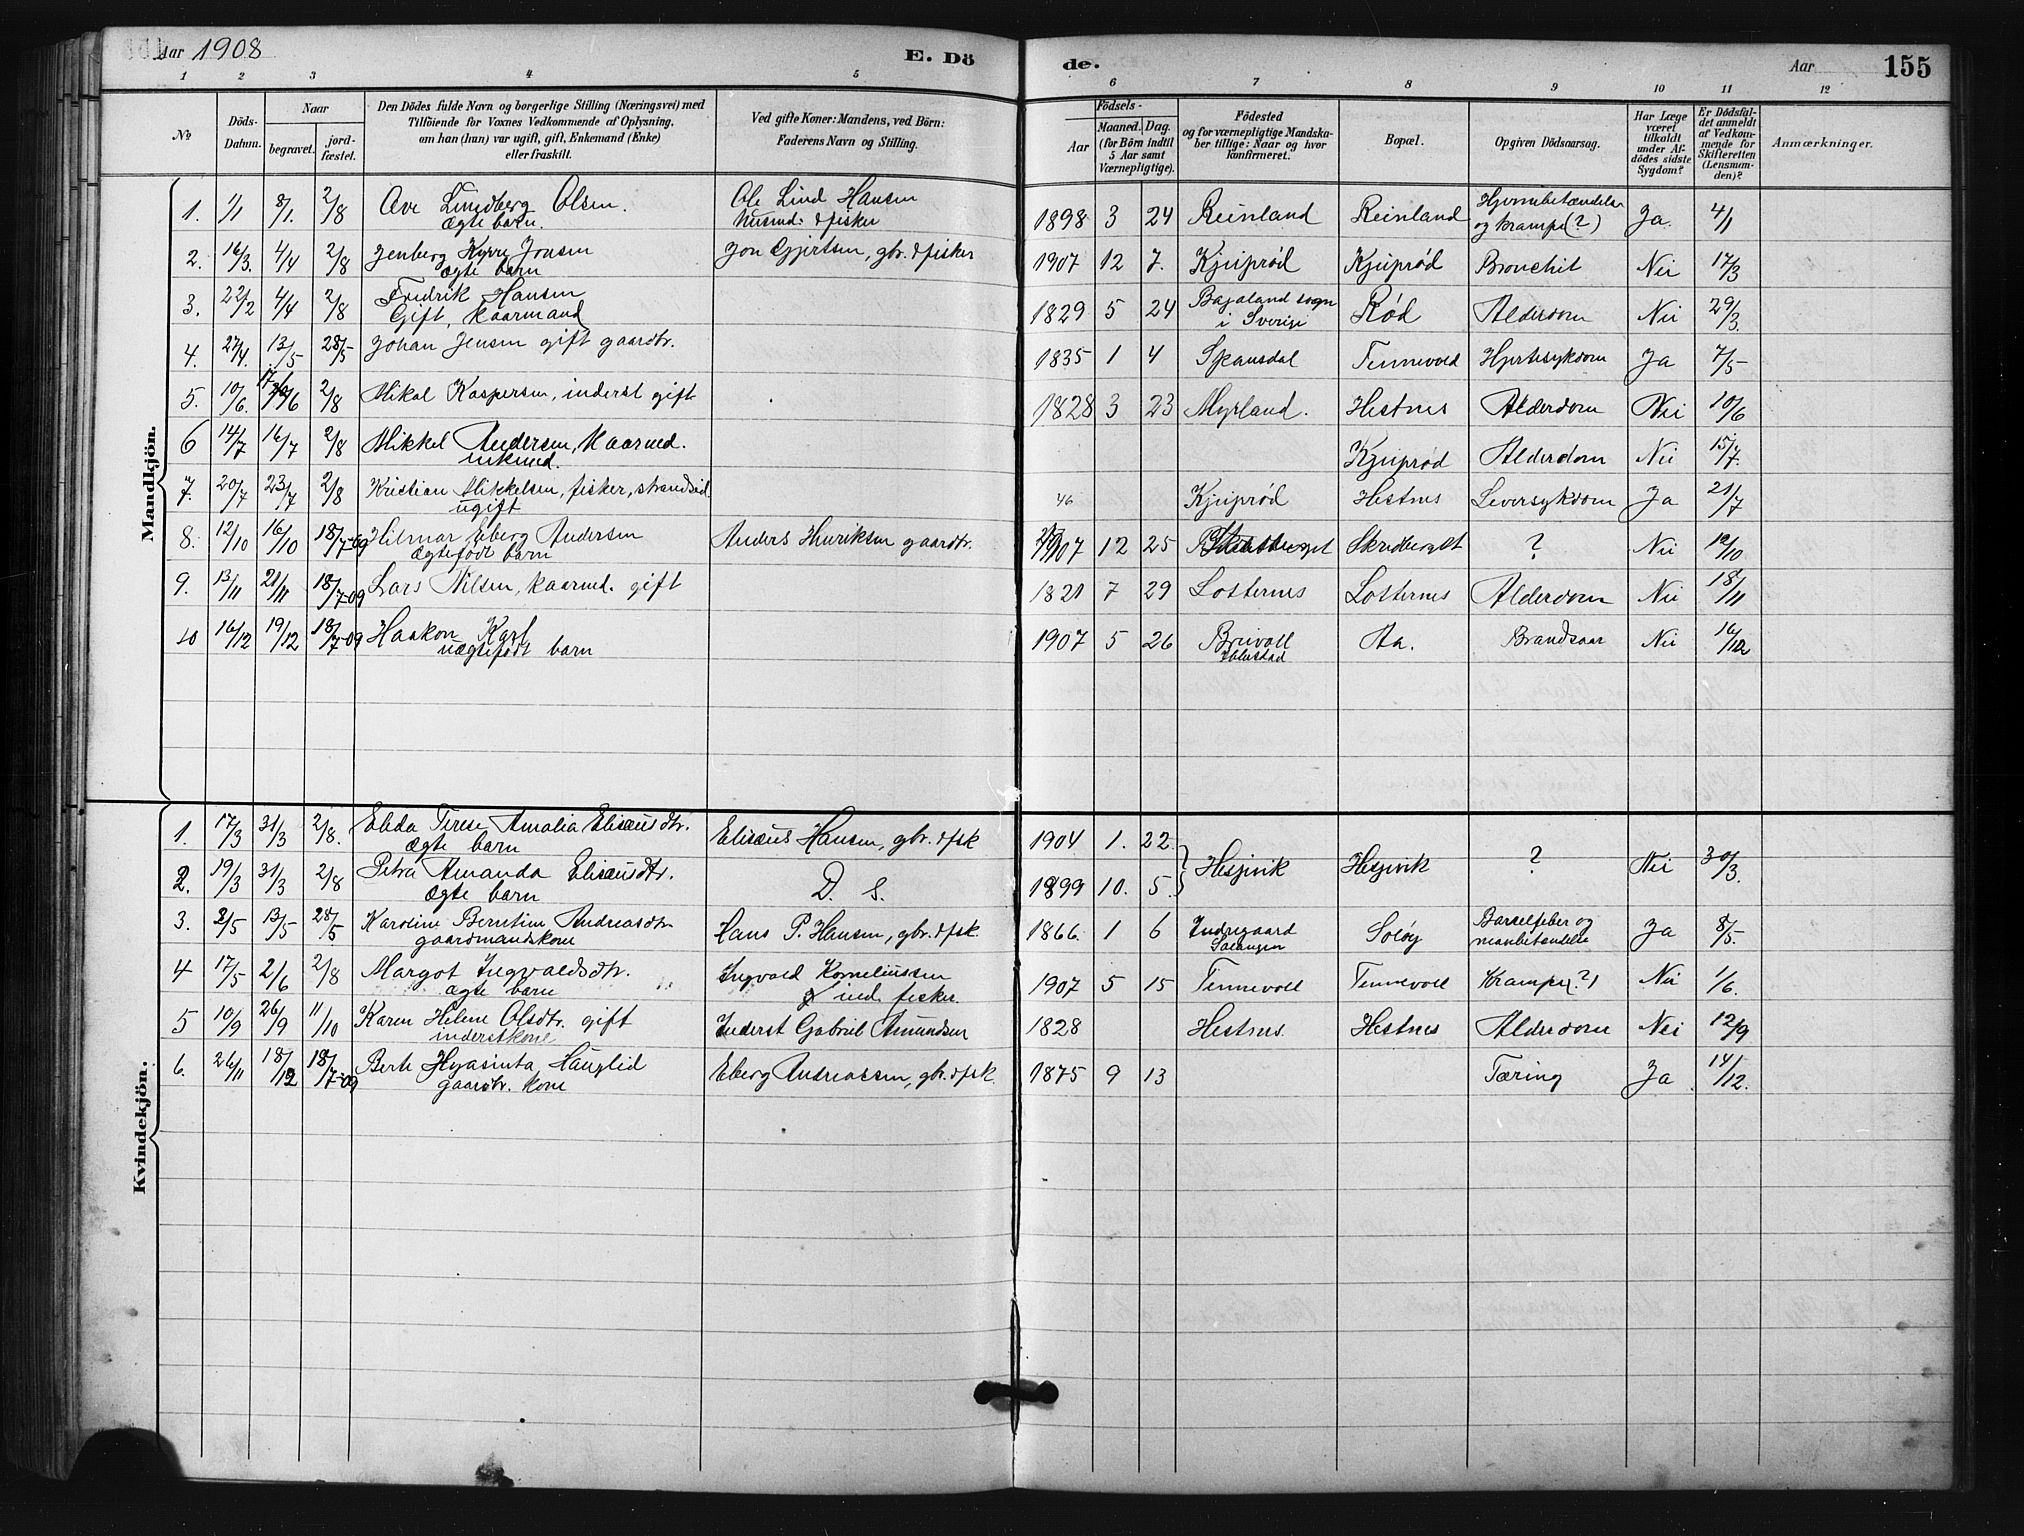 Aar 1908 E. Dö de. Aar 155
1 2 3 4 5 6 7 8 9 10 11 12
No Döds-Datum. Naar begravet. jord-fæstet. Den Dödes fulde Navn og borgerlige Stilling (Næringsvei) med Tilföiende for Voxnes Vedkommende af Oplysning, om han (hun) var ugift, gift, Enkemand (Enke) eller fraskilt. Ved gifte Koner: Mandens, ved Börn: Faderens Navn og Stilling. Födsels- Aar Maaned. Dag. (for Börn indtil 5 Aar samt Værnepligtige). Födested og for værnepligtige Mandska-ber tillige: Naar og hvor konfirmeret. Bopæl. Opgiven Dödsaarsag. Har Læge været tilkaldt under Af-dödes sidste Sygdom? Er Dødsfal-det anmeldt af Vedkom-mende for Skifteretten (Lensman-den)? Anmærkninger.
Mandkjön.
1. 1/1 8/1. 2/8 Ove Lindberg Olsen. Ole Lind Hansen 1898 3 24 Reinland Reinland Hjernebetændelse Ja. 4/1
ægte barn. husmd. & fisker og krampe (?)
2. 16/3. 4/4 2/8 Jenberg Kyrre Jonsen Jon Gjertsen, gbr. & fisker 1907 12 7. Kjuprød Kjuprød Bronchit Nei 17/3
ægte barn
3. 22/2 4/4 2/8 Fredrik Hansen 1829 5 24 sogn Rød Alderdom Nei 29/3.
Gift, kaarmand i Sverige
4. 27/4. 13/5 28/5 Johan Jensen gift gaardbr. 1835 1 4 Spansdal Tennevold Hjertesykdom Ja 7/5
5. 10/6. 2/8 Mikal Kaspersen, inderst gift 1828 3 23 Myrland. Hestnes Alderdom Nei 10/6
6 14/7 16/7 2/8 Mikkel Andersen, kaarmd. Kjuprød Alderdom Nei 15/7.
enkemd.
7. 20/7 23/7 2/8 Kristian Mikkelsen, fisker, strandsid 46 Kjuprød Hestnes Leversykdom Ja 21/7
ugift
8. 12/10 16/10 18/7-09 Hilmar Eberg Andersen Anders Henriksen gaardbr. 1907 12 25 ? Nei 12/10
ægtefødt barn
9. 13/11 21/11 18/7-09 Lars Nilsen, kaarmd. gift 1821 7 29 Lotternes Lotternes Alderdom Nei 18/11
10 16/12 19/12 18/7-09 Haakon Karl 1907 5 26 Breivoll Aa. Brandsaar Nei 16/12
uægtefødt barn Ibbestad
Kvindekjön.
1. 17/3 31/3 2/8. Elida Terese Amalia Elisæusdtr. Elisæus Hansen, gbr. & fsk 1904 1. 22.
ægte barn
2. 19/3 31/3 2/8 Petra Amanda Elisæusdtr. D. S. 1899 10. 5 Hesjevik Hesjevik ? Nei 30/3.
ægte barn
3. 2/5 13/5 28/5 Karoline Berntine Andreasdtr Hans P. Hansen, gbr. & fsk. 1866. 1 6 Indregaard Soløy Barselfeber og Ja 8/5.
gaardmandskone Salangen
4 17/5 2/6 2/8 Margot Ingvaldsdtr. Ingvald Korneliussen 1907 5 15 Tennevoll Tennevoll Krampe(?) Nei 1/6.
ægte barn ind. fisker
5 10/9 26/9 11/10 Karen Helene Olsdtr. gift Inderst Gabriel Amundsen 1828 Hestnes Hestnes Alderdom Nei 12/9
inderstkone
6. 26/11 18/12 18/7-09 Berte Hyasinta Hauglid Eberg Andreassen, gbr. & fsk. 1875 9 13 Tæring Ja 14/12.
gaardbr. kone